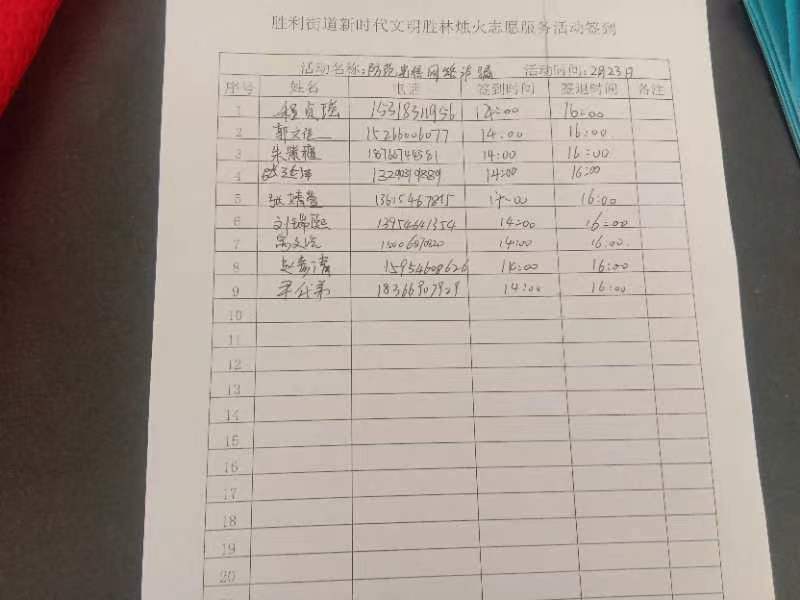 胜利街道新时代文明胜林烛火志愿服务活动签到
活动名称:防范电信网络诈骗 活动时间:2月23日
序号 姓名 电话 签到时间 签退时间 备注
1 程贞陆 15318311956 14:00 16:00
2 郭文 15266006077 14:00 16:00
3 朱 18766748581 14:00 16:00
4 14:00 16:00
5 张 13615467815 14:00 16:00
6 刘瑞 13954641354 14:00 16:00
7 14:00 16:00
8 赵 15954608626 14:00 16:00
9 18366907929 14:00 16:00
10
11
12
13
14
15
16
17
18
19
20